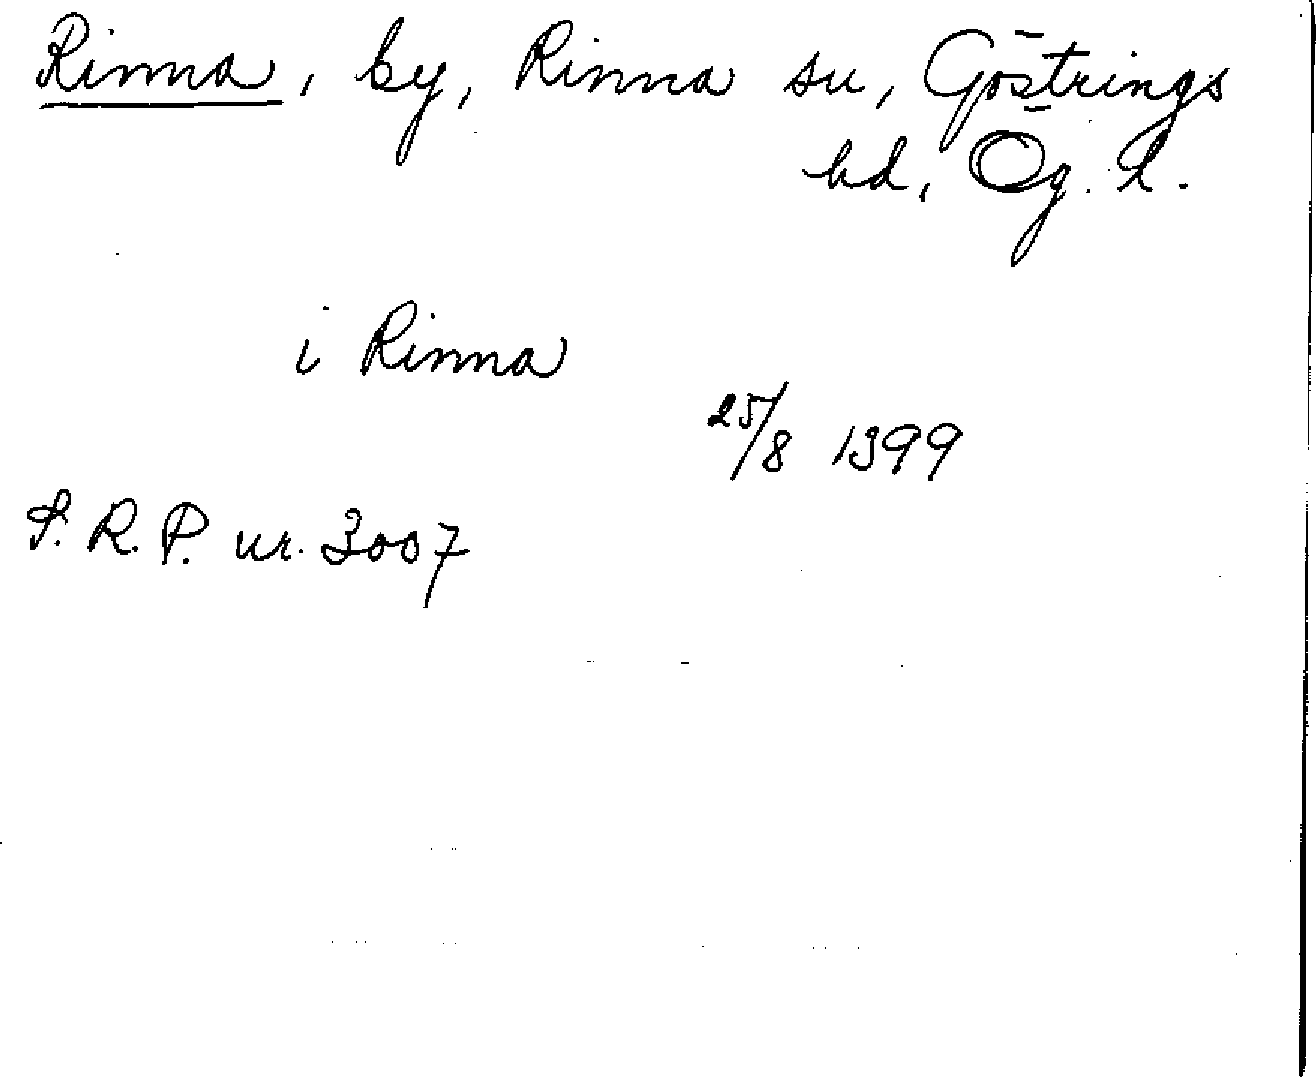 Rinna, by, Rinna sn, Göstrings
hd, Ög. l.
i Rinna
25/8 1399
S. R. P. nr. 3007